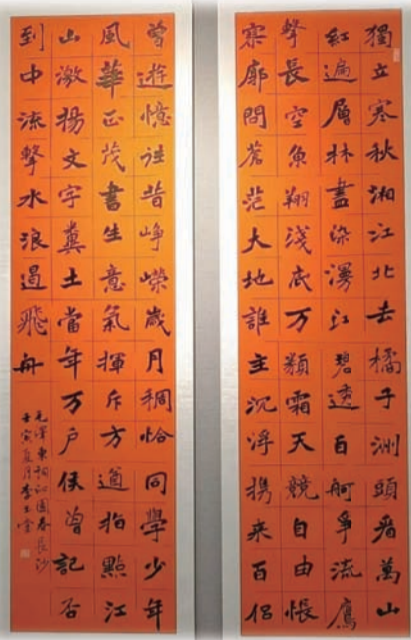 獨立寒秋湘江北去橘子洲頭看萬山
紅遍層林盡染漫江碧透百舸爭流鷹
擊長空魚翔淺底万類霜天競自由悵
寥廓問蒼茫大地誰主沉浮携来百侶
曾遊憶往昔崢嶸歲月稠恰同學少年
風華正茂書生意氣揮斥方遒指點江
山激揚文字糞土當年万户侯曾記否
到中流擊水浪遏飛舟
毛澤東詞沁園春長沙
壬寅夏月李玉